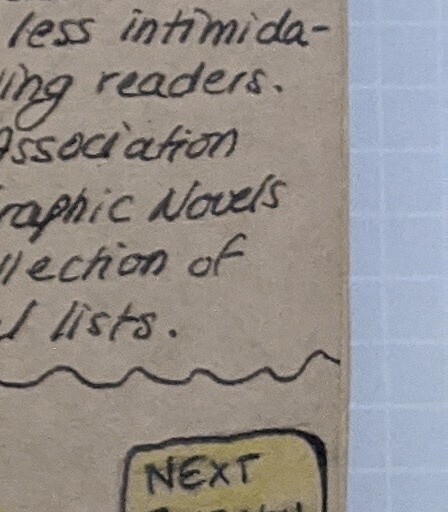 less intimida-
ing readers.
Association
raphic Novels
llection of
lists.
NEXT